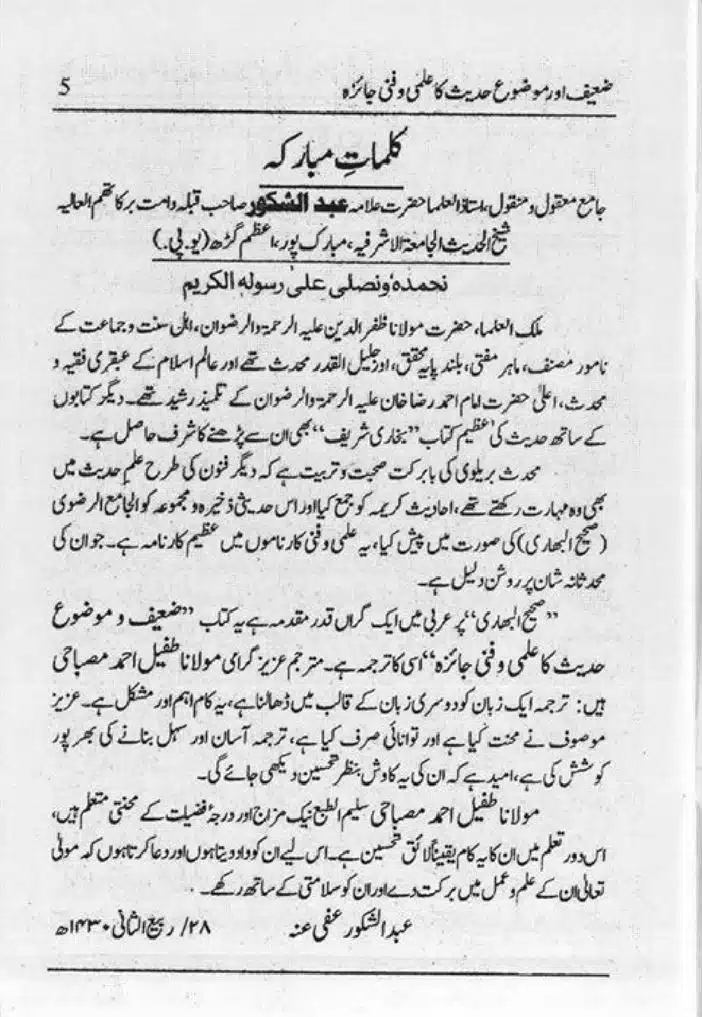 ضعیف اور موضوع حدیث کا علمی و فنی جائزہ 5
کلماتِ مبارکہ
جامع معقول و منقول، استاذ العلما حضرت علامہ عبد الشکور صاحب قبلہ دامت برکاتھم العالیہ
شیخ الحدیث الجامعۃ الاشرفیہ، مبارک پور، اعظم گڑھ (یو.پی.)
نحمدہ ونصلی علیٰ رسولہ الکریم
ملک العلما، حضرت مولانا ظفر الدین علیہ الرحمۃ والرضوان، اہل سنت و جماعت کے
نامور مصنف، ماہر مفتی، بلند پایہ محقق، اور جلیل القدر محدث تھے اور عالم اسلام کے عبقری فقیہ و
محدث، اعلیٰ حضرت امام احمد رضا خان علیہ الرحمۃ والرضوان کے تلمیذ رشید تھے۔ دیگر کتابوں
کے ساتھ حدیث کی عظیم کتاب ”بخاری شریف“ بھی ان سے پڑھنے کا شرف حاصل ہے۔
محدث بریلوی کی بابرکت صحبت و تربیت ہے کہ دیگر فنون کی طرح علم حدیث میں
بھی وہ مہارت رکھتے تھے، احادیث کریمہ کو جمع کیا اور اس حدیثی ذخیرہ و مجموعہ کو الجامع الرضوی
(صحیح البھاری) کی صورت میں پیش کیا، یہ علمی و فنی کارناموں میں عظیم کارنامہ ہے۔ جو ان کی
محدثانہ شان پر روشن دلیل ہے۔
”صحیح البھاری“ پر عربی میں ایک گراں قدر مقدمہ ہے یہ کتاب ”ضعیف و موضوع
حدیث کا علمی و فنی جائزہ“ اسی کا ترجمہ ہے۔ مترجم عزیز گرامی مولانا طفیل احمد مصباحی
ہیں: ترجمہ ایک زبان کو دوسری زبان کے قالب میں ڈھالنا ہے، یہ کام اہم اور مشکل ہے۔ عزیز
موصوف نے محنت کیا ہے اور توانائی صرف کیا ہے، ترجمہ آسان اور سہل بنانے کی بھر پور
کوشش کی ہے، امید ہے کہ ان کی یہ کاوش بنظر تحسین دیکھی جائے گی۔
مولانا طفیل احمد مصباحی سلیم الطبع نیک مزاج اور درجۂ فضیلت کے محنتی متعلم ہیں،
اس دور تعلم میں ان کا یہ کام یقیناً لائق تحسین ہے۔ اس لیے ان کو داد دیتا ہوں اور دعا کرتا ہوں کہ مولیٰ
تعالیٰ ان کے علم و عمل میں برکت دے اور ان کو سلامتی کے ساتھ رکھے۔
عبد الشکور عفی عنہ ۲۸/ ربیع الثانی ۱۴۳۰ھ